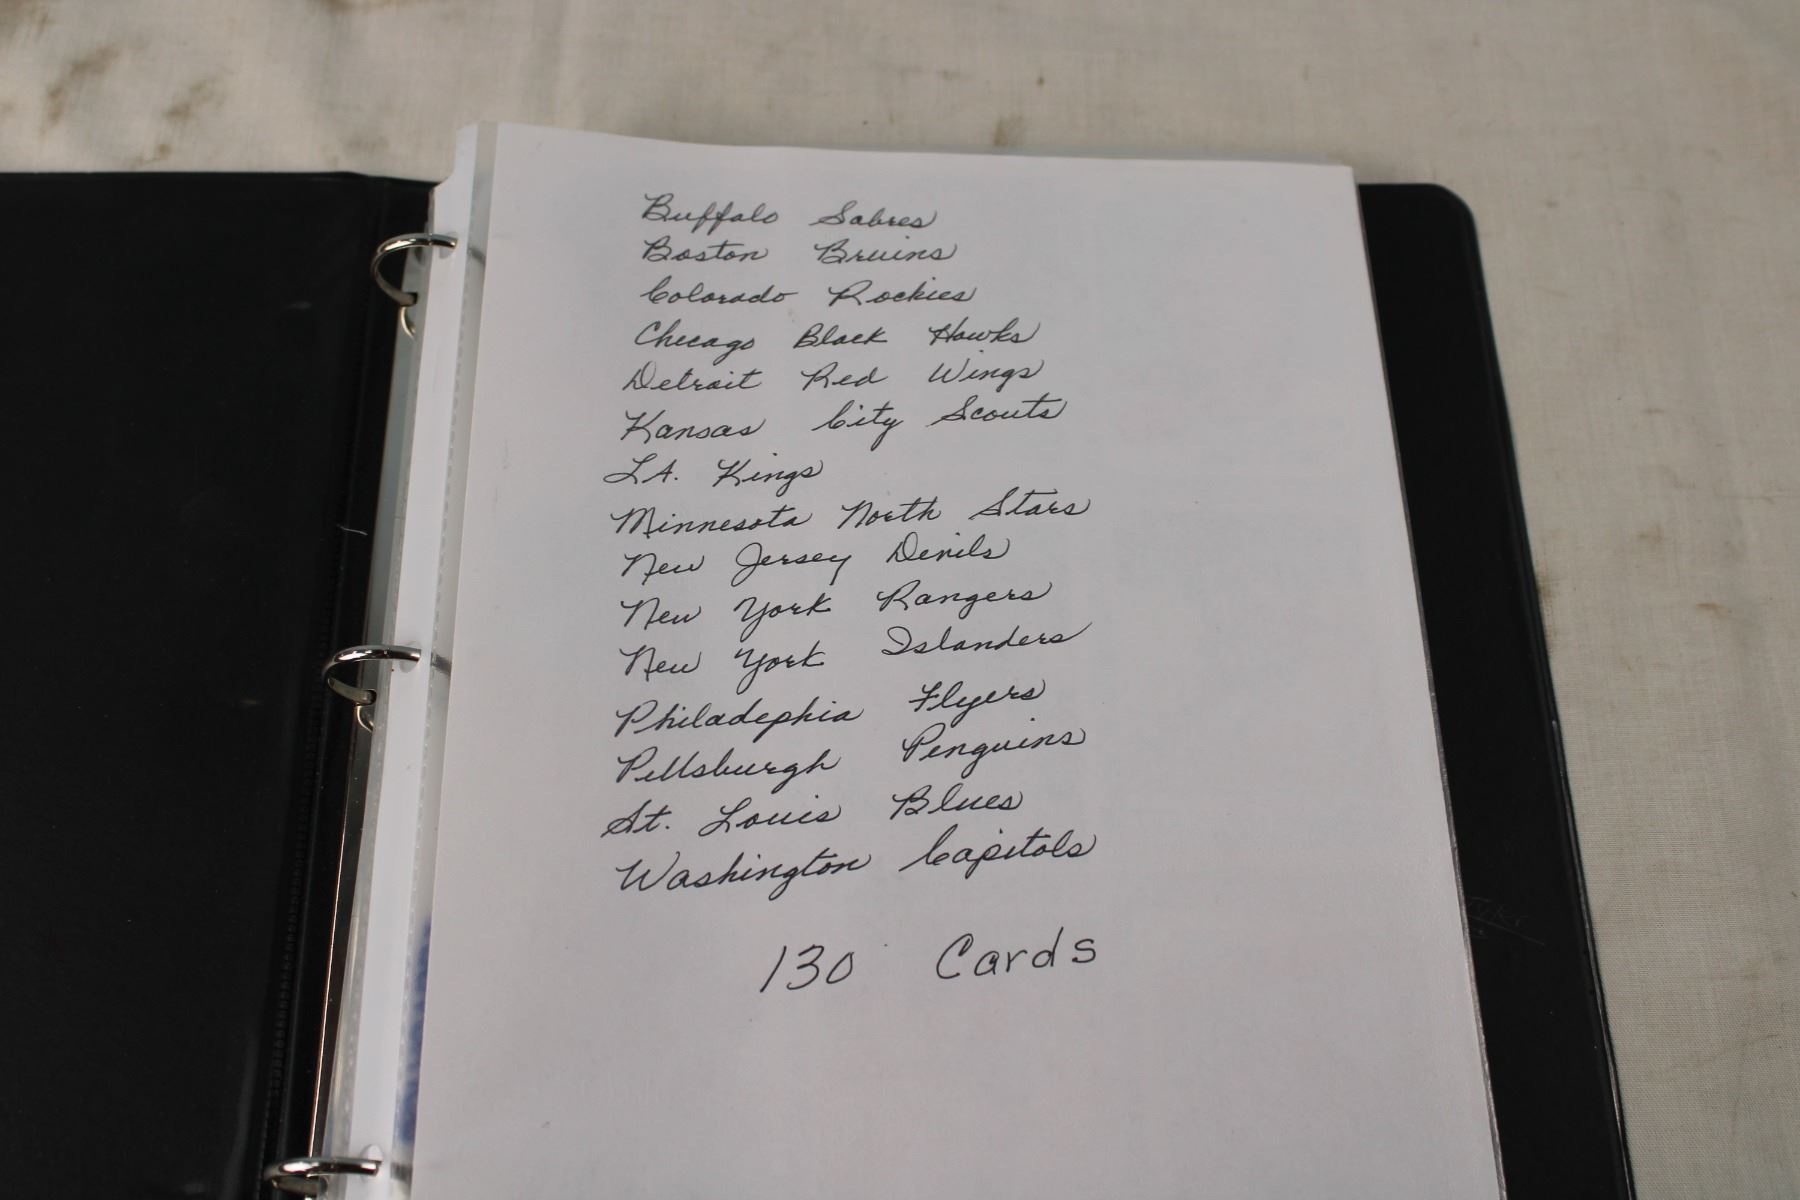 Buffalo Sabres
Boston Bruins
Colorado Rockies
Chicago Black Hawks
Detroit Red Wings
Kansas City Scouts
L.A. Kings
Minnesota North Stars
New Jersey Devils
New York Rangers
New York Islanders
Philadephia Flyers
Pittsburgh Penguins
St. Louis Blues
Washington Capitols
130 Cards